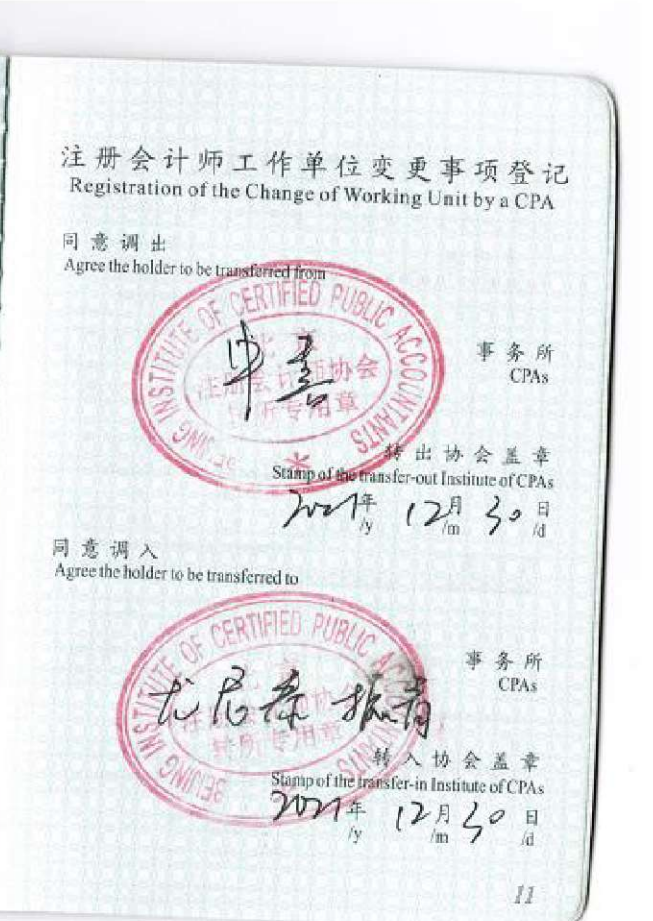 注册会计师工作单位变更事项登记
Registration of the Change of Working Unit by a CPA
同意调出
Agree the holder to be transferred from
BEIJING INSTITUTE OF CERTIFIED PUBLIC ACCOUNTANTS
北京
注册会计师协会
转所专用章
中喜
事务所
CPAs
转出协会盖章
Stamp of the transfer-out Institute of CPAs
2021年 12月 30日
/y /m /d
同意调入
Agree the holder to be transferred to
BEIJING INSTITUTE OF CERTIFIED PUBLIC ACCOUNTANTS
北京
注册会计师协会
转所专用章
尤尼泰振青
事务所
CPAs
转入协会盖章
Stamp of the transfer-in Institute of CPAs
2021年 12月 30日
/y /m /d
11